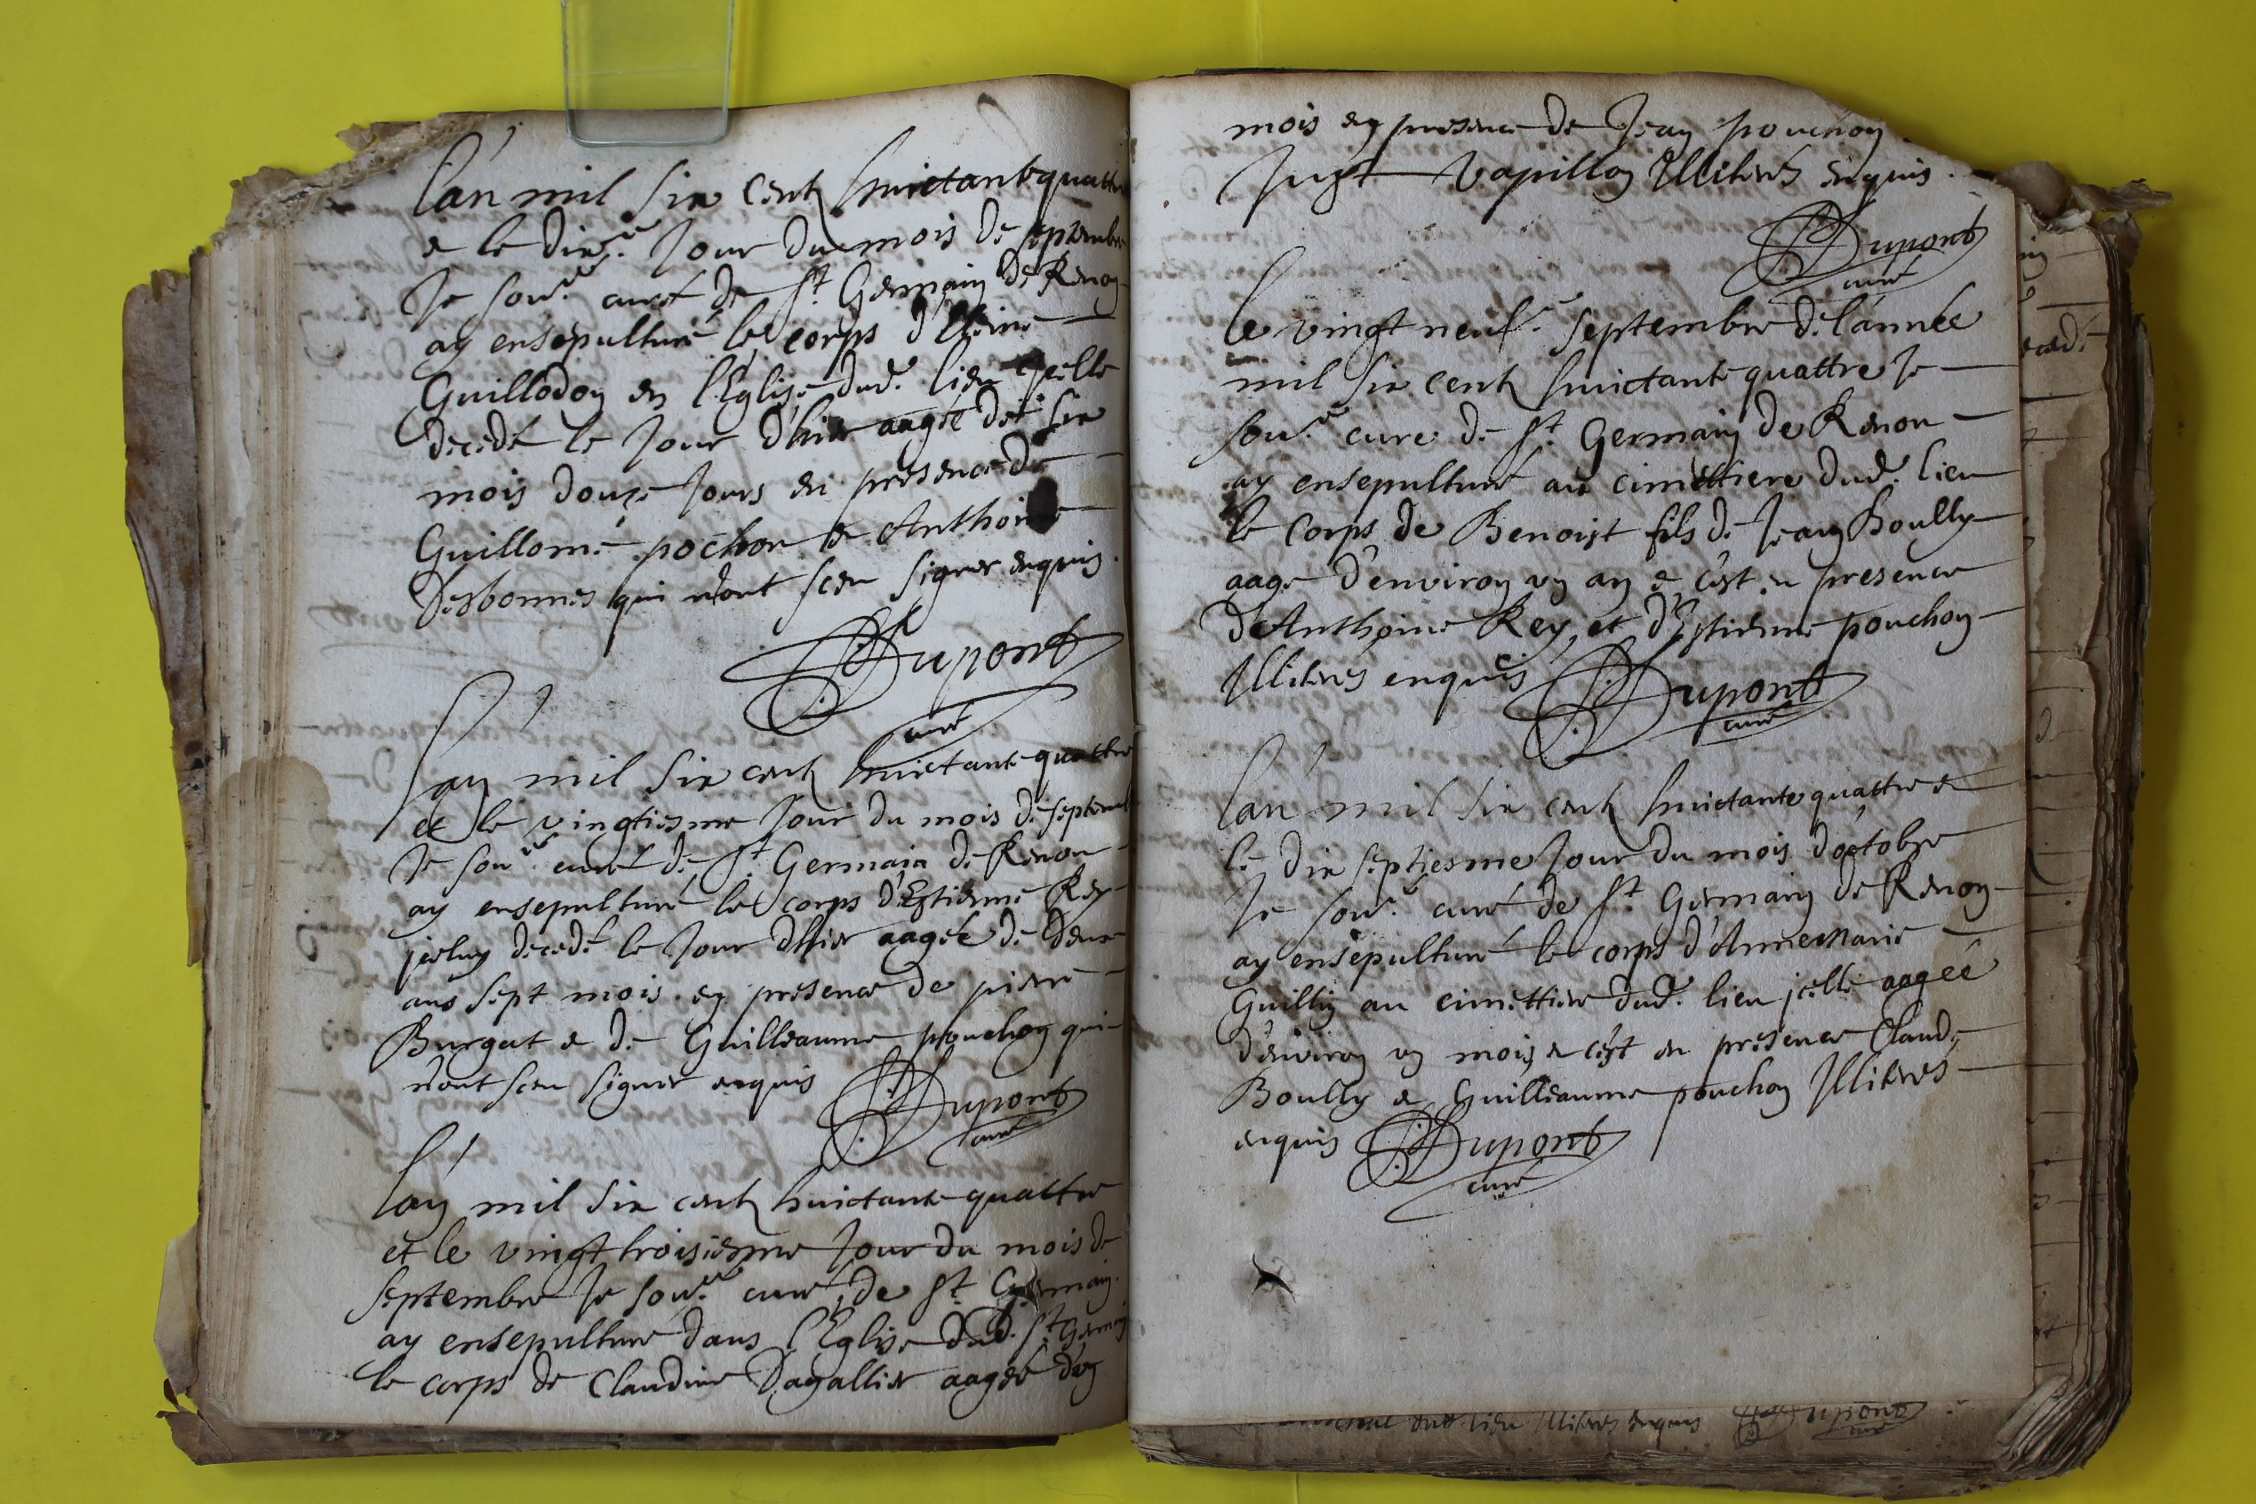 lan mil six cent huictante quattre
e le dixe. Jour du mois de septembre
Je sous.é curé de St. Germain de Renon
ay ensepulturé le corps d'
Guillodon en l'Eglise dud. lieu jcelle
decedé le Jour d'hier aagée de six
mois douze Jours en presence de
Guillome pochon e Anthoine
Desbonnes qui n'ont sceu signer enquis.
Dupont
curé
Lan mil six cent huictante quattre
et le vingtiesme Jour du mois de septemb
Je sous.é curé de St. Germain de Renon
ay ensepulturé le corps d'Estienne Rey
jceluy decedé le Jour d'hier aagée de deux
ans sept mois en presence de pierre
Burgat e de Guilleaume pouchon qui
n'ont sceu signer enquis Dupont
curé
lan mil six cent huictante quattre
et le vingt troisiesme Jour du mois de
septembre Je sous.é curé de St. Germain
ay ensepulturé dans l'Eglise dud. St Germain
le corps de Claudine Dagallier aagée d'un
mois en presence de Jean pouchon
Just Vapillon Illiterés enquis.
Dupont
curé
le vingt neufe. septembre de l'année
mil six cent huictante quattre Je
sous.é curé de St. Germain de Renon
ay ensepulturé au cimettiere dud. lieu
le corps de Benoist fils de Jean Boully
aagé d'environ un an e c'est en presence
d'Anthoine Rey, et d'Estienne pouchon
Illiterés enquis Dupont
curé
lan mil six cent huictante quattre e
le dix septiesme Jour du mois d'octobre
Je sous.é curé de St. Germain de Renon
ay ensepulturé le corps d'Annemarie
Guillin au cimettiere dud. lieu jcelle aagée
d'environ un mois e c'est en presence Claude
Boully e Guilleaume pouchon Illiterés
enquis Dupont
curé
dud. lieu Illiterés enquis Dupont
curé